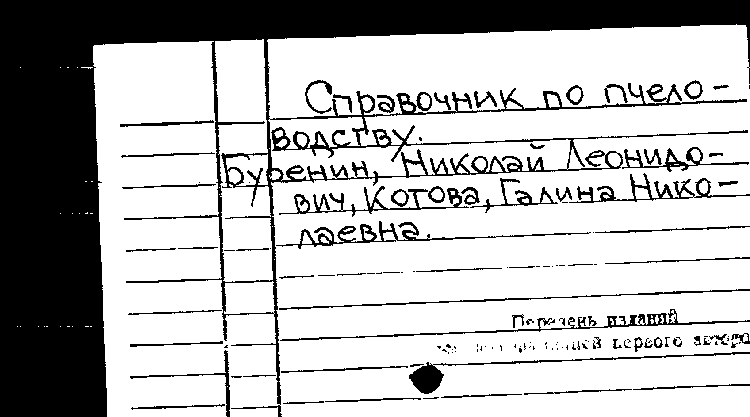 Справочник по пчело-
водству.
Буренин, Николай Леонидо-
вич, Котова, Галина Нико-
лаевна.
Перечень изданий
первого автора